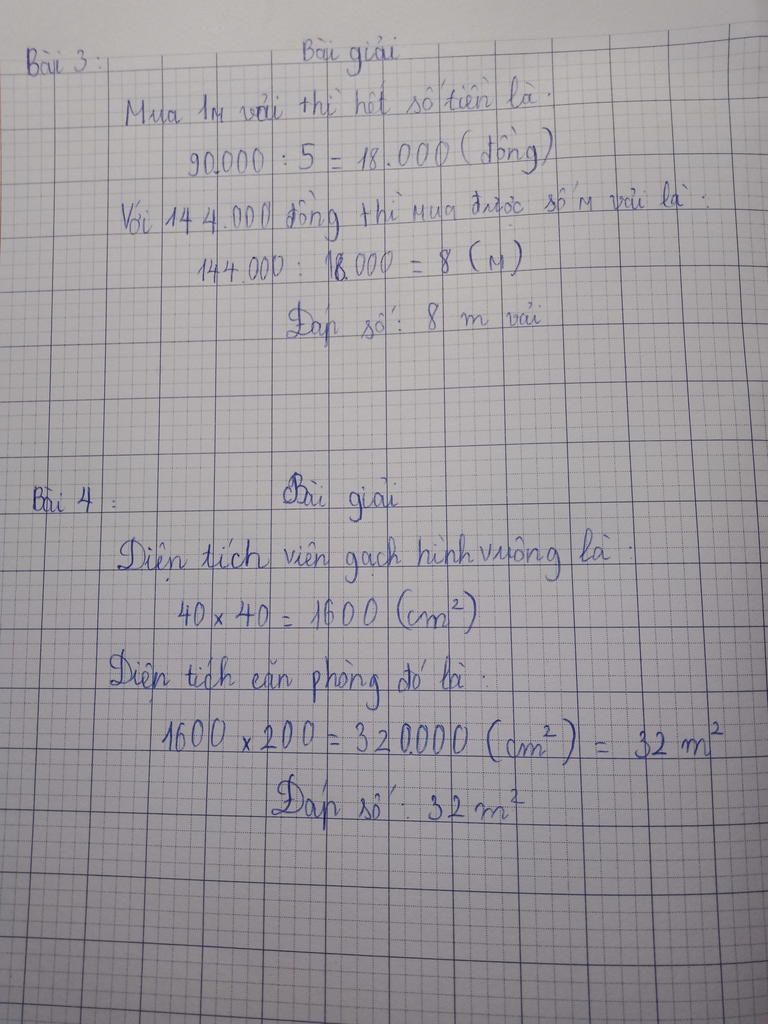 Bài 3:
Bài giải
Mua 1m vải thì hết số tiền là.
90.000 : 5 = 18.000 (đồng)
Với 144.000 đồng thì mua được số m vải là:
144.000 : 18.000 = 8 (m)
Đáp số: 8 m vải
Bài 4:
Bài giải
Diện tích viên gạch hình vuông là:
40 x 40 = 1600 (cm²)
Diện tích căn phòng đó là:
1600 x 200 = 320.000 (cm²) = 32 m²
Đáp số: 32 m²